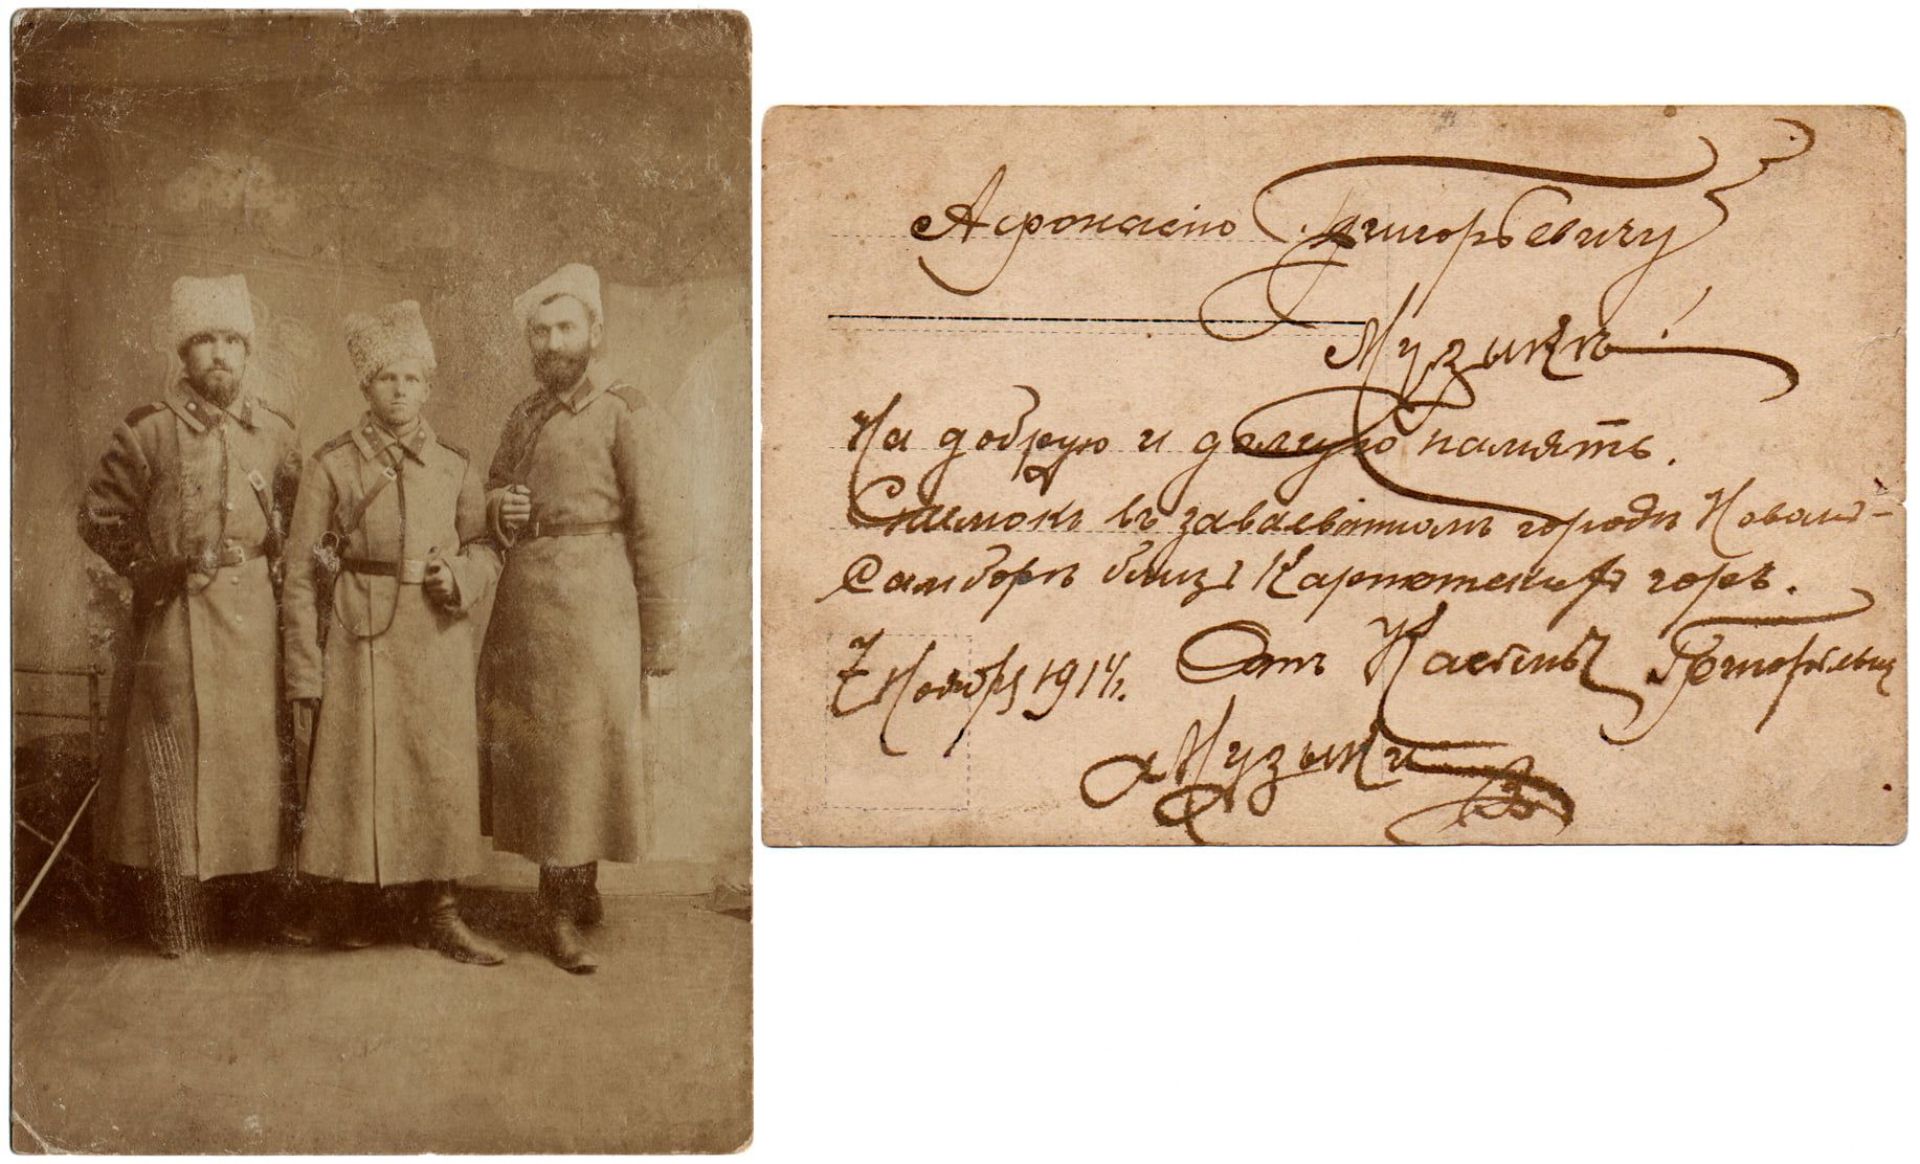 Афонасію Григорьевичу
Музыкѣ!
На добрую и долгую память.
Снимокъ въ завоеванномъ городѣ Новомъ-
Самборѣ близ Карпатскихъ горъ.
7 Ноября 1914. Отъ Григорьевича
Музыки